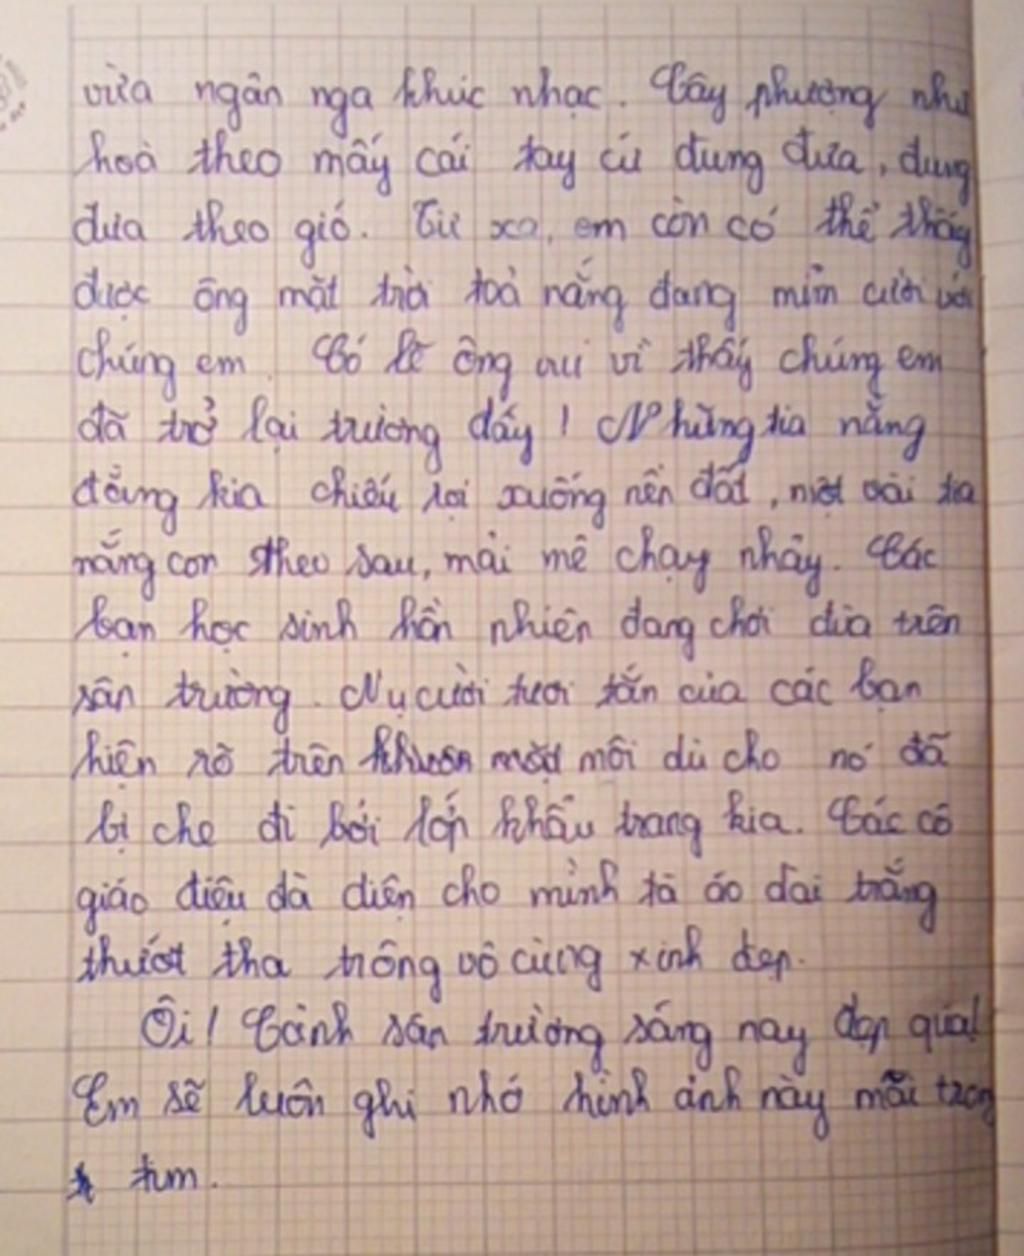 vừa ngân nga khúc nhạc. Cây phượng như
hoà theo mấy cái tay cứ đung đưa, đung
đưa theo gió. Từ xa, em còn có thể thấy
được ông mặt trời toả nắng đang mỉm cười với
chúng em. Có lẽ ông vui vì thấy chúng em
đã trở lại trường đấy! Những tia nắng
đằng kia chiếu rọi xuống nền đất, một vài tia
nắng con theo sau, mải mê chạy nhảy. Các
bạn học sinh hồn nhiên đang chơi đùa trên
sân trường. Nụ cười tươi tắn của các bạn
hiện rõ trên môi dù cho nó đã
bị che đi bởi lớp khẩu trang kia. Các cô
giáo điệu đà diện cho mình tà áo dài trắng
thướt tha trông vô cùng xinh đẹp.
Ôi! Cảnh sân trường sáng nay đẹp quá!
Em sẽ luôn ghi nhớ hình ảnh này mãi trong
tim.